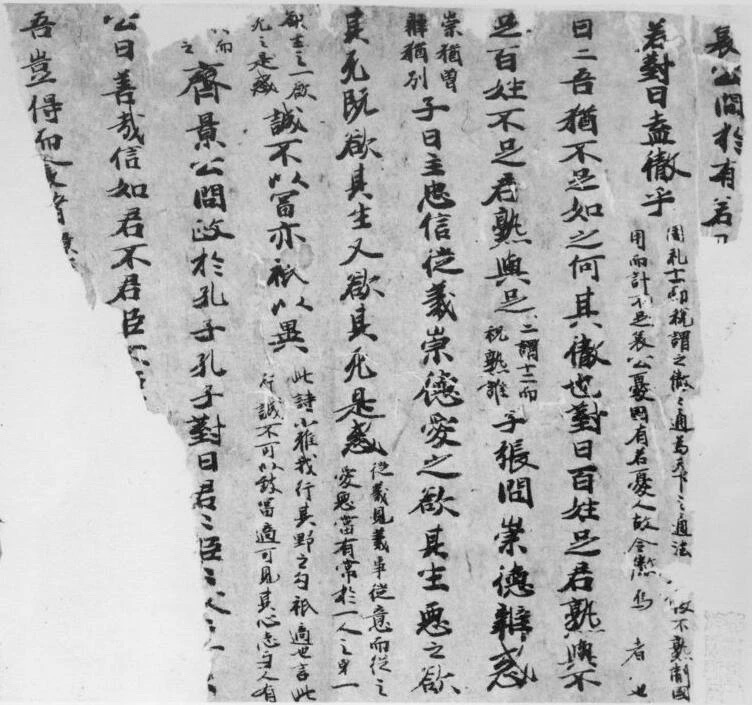 哀公問於有若曰
若對曰盍徹乎 周礼十一而税謂之徹〻通為天下之通法
用而計不足哀公憂國有若憂人故合徹焉 者 也
曰二吾猶不足如之何其徹也對曰百姓足君熟與不
足百姓不足君熟與足 二謂十二而
税熟誰 子張問崇德辨惑
崇猶曾
辨猶別 子曰主忠信從義崇德愛之欲其生惡之欲
其死既欲其生又欲其死是惑 從義見義事從意而從之
愛惡當有常於一人之身一
欲生之一欲
死之是惑 誠不以冨亦祇以異 此詩小雅我行其野之句祇適也言此
行誠不可以致冨適可見其心志与人有
齊景公問政於孔子孔子對曰君〻臣〻父〻
公曰善哉信如君不君臣不
吾豈得而食諸